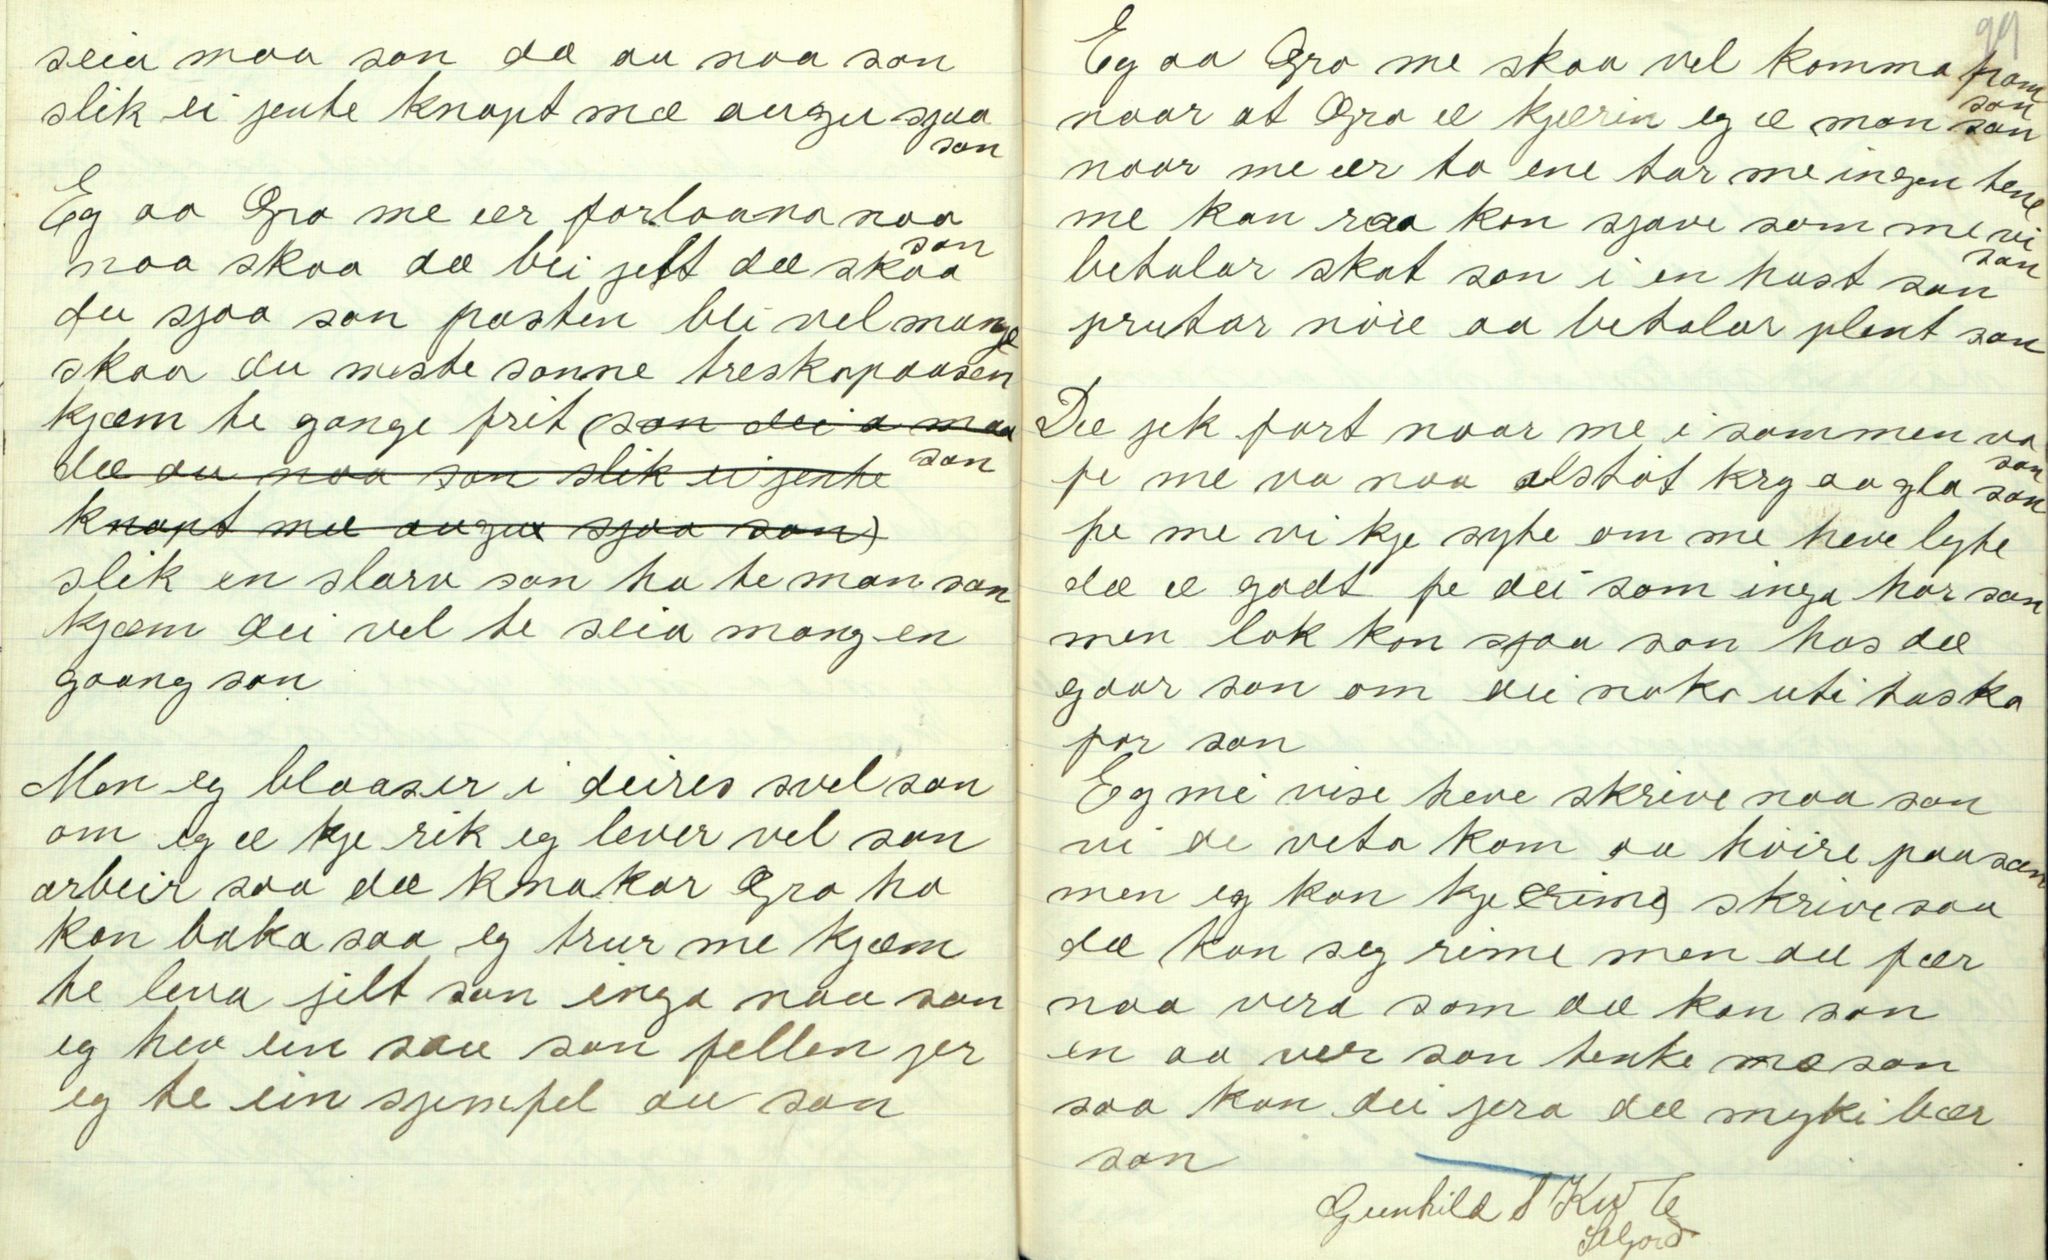 seia maa san dæ au naa san
slik ei jente knapt mæ augu sjaa
san
Eg aa Gro me ær forlaana naa
san
naa skaa dæ bli jilt dæ skaa
du sjaa san pasten bli vel mange
skaa du meste sanne treskopaasen
kjæm te gange frit (san dei a maa
dæ au naa san slik ei jente san
knapt mæ augu sjaa san)
slik en slarv san ha te man san
kjæm dei vel te seia mang en
gaang san
Men eg blaaser i deires svel san
om eg æ kje rik eg lever vel san
arbeir saa dæ knakar Gro ho
kan baka saa eg trur me kjæm
te leva jilt san inga nau san
eg hev ein sau san fellen jer
eg te ein sjempel au san
99
Eg aa Gro me skaa vel komma fram
san
naar at Gro æ kjærin eg æ man san
naar me ær to ene tar me ingen tene
me kan raa kon sjave som me vi
san
betalar skat san i en hast san
prutar nöie aa betalar plent san
Dæ jek fort naar me i sammen va
san
fe me va naa alstöt kry aa gla san
fe me vi kje syte om me heve lyte
dæ æ godt fe dei som inga har san
men lak kan sjaa san has dæ
gaar san om dei noko uti taska
for san
Eg mi vise heve skrive naa san
vi de veta kom aa höire paa san
men eg kan kje (rime) skrive saa
dæ kan seg rime men dæ fær
naa vera som dæ kan san
en aa ver san tenke mæ san
saa kan dei jera dæ myki bær
san
Gunhild
Seljord